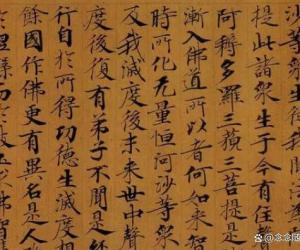 沙等衆生
提此諸衆生于今有住
阿耨多羅三藐三菩提是
漸入佛道所以者何如来
時所化无量恒河沙等衆
及我滅度後未来世中聲
度後復有弟子不聞是
行自於所得功德生滅度
餘國作佛更有異名是人